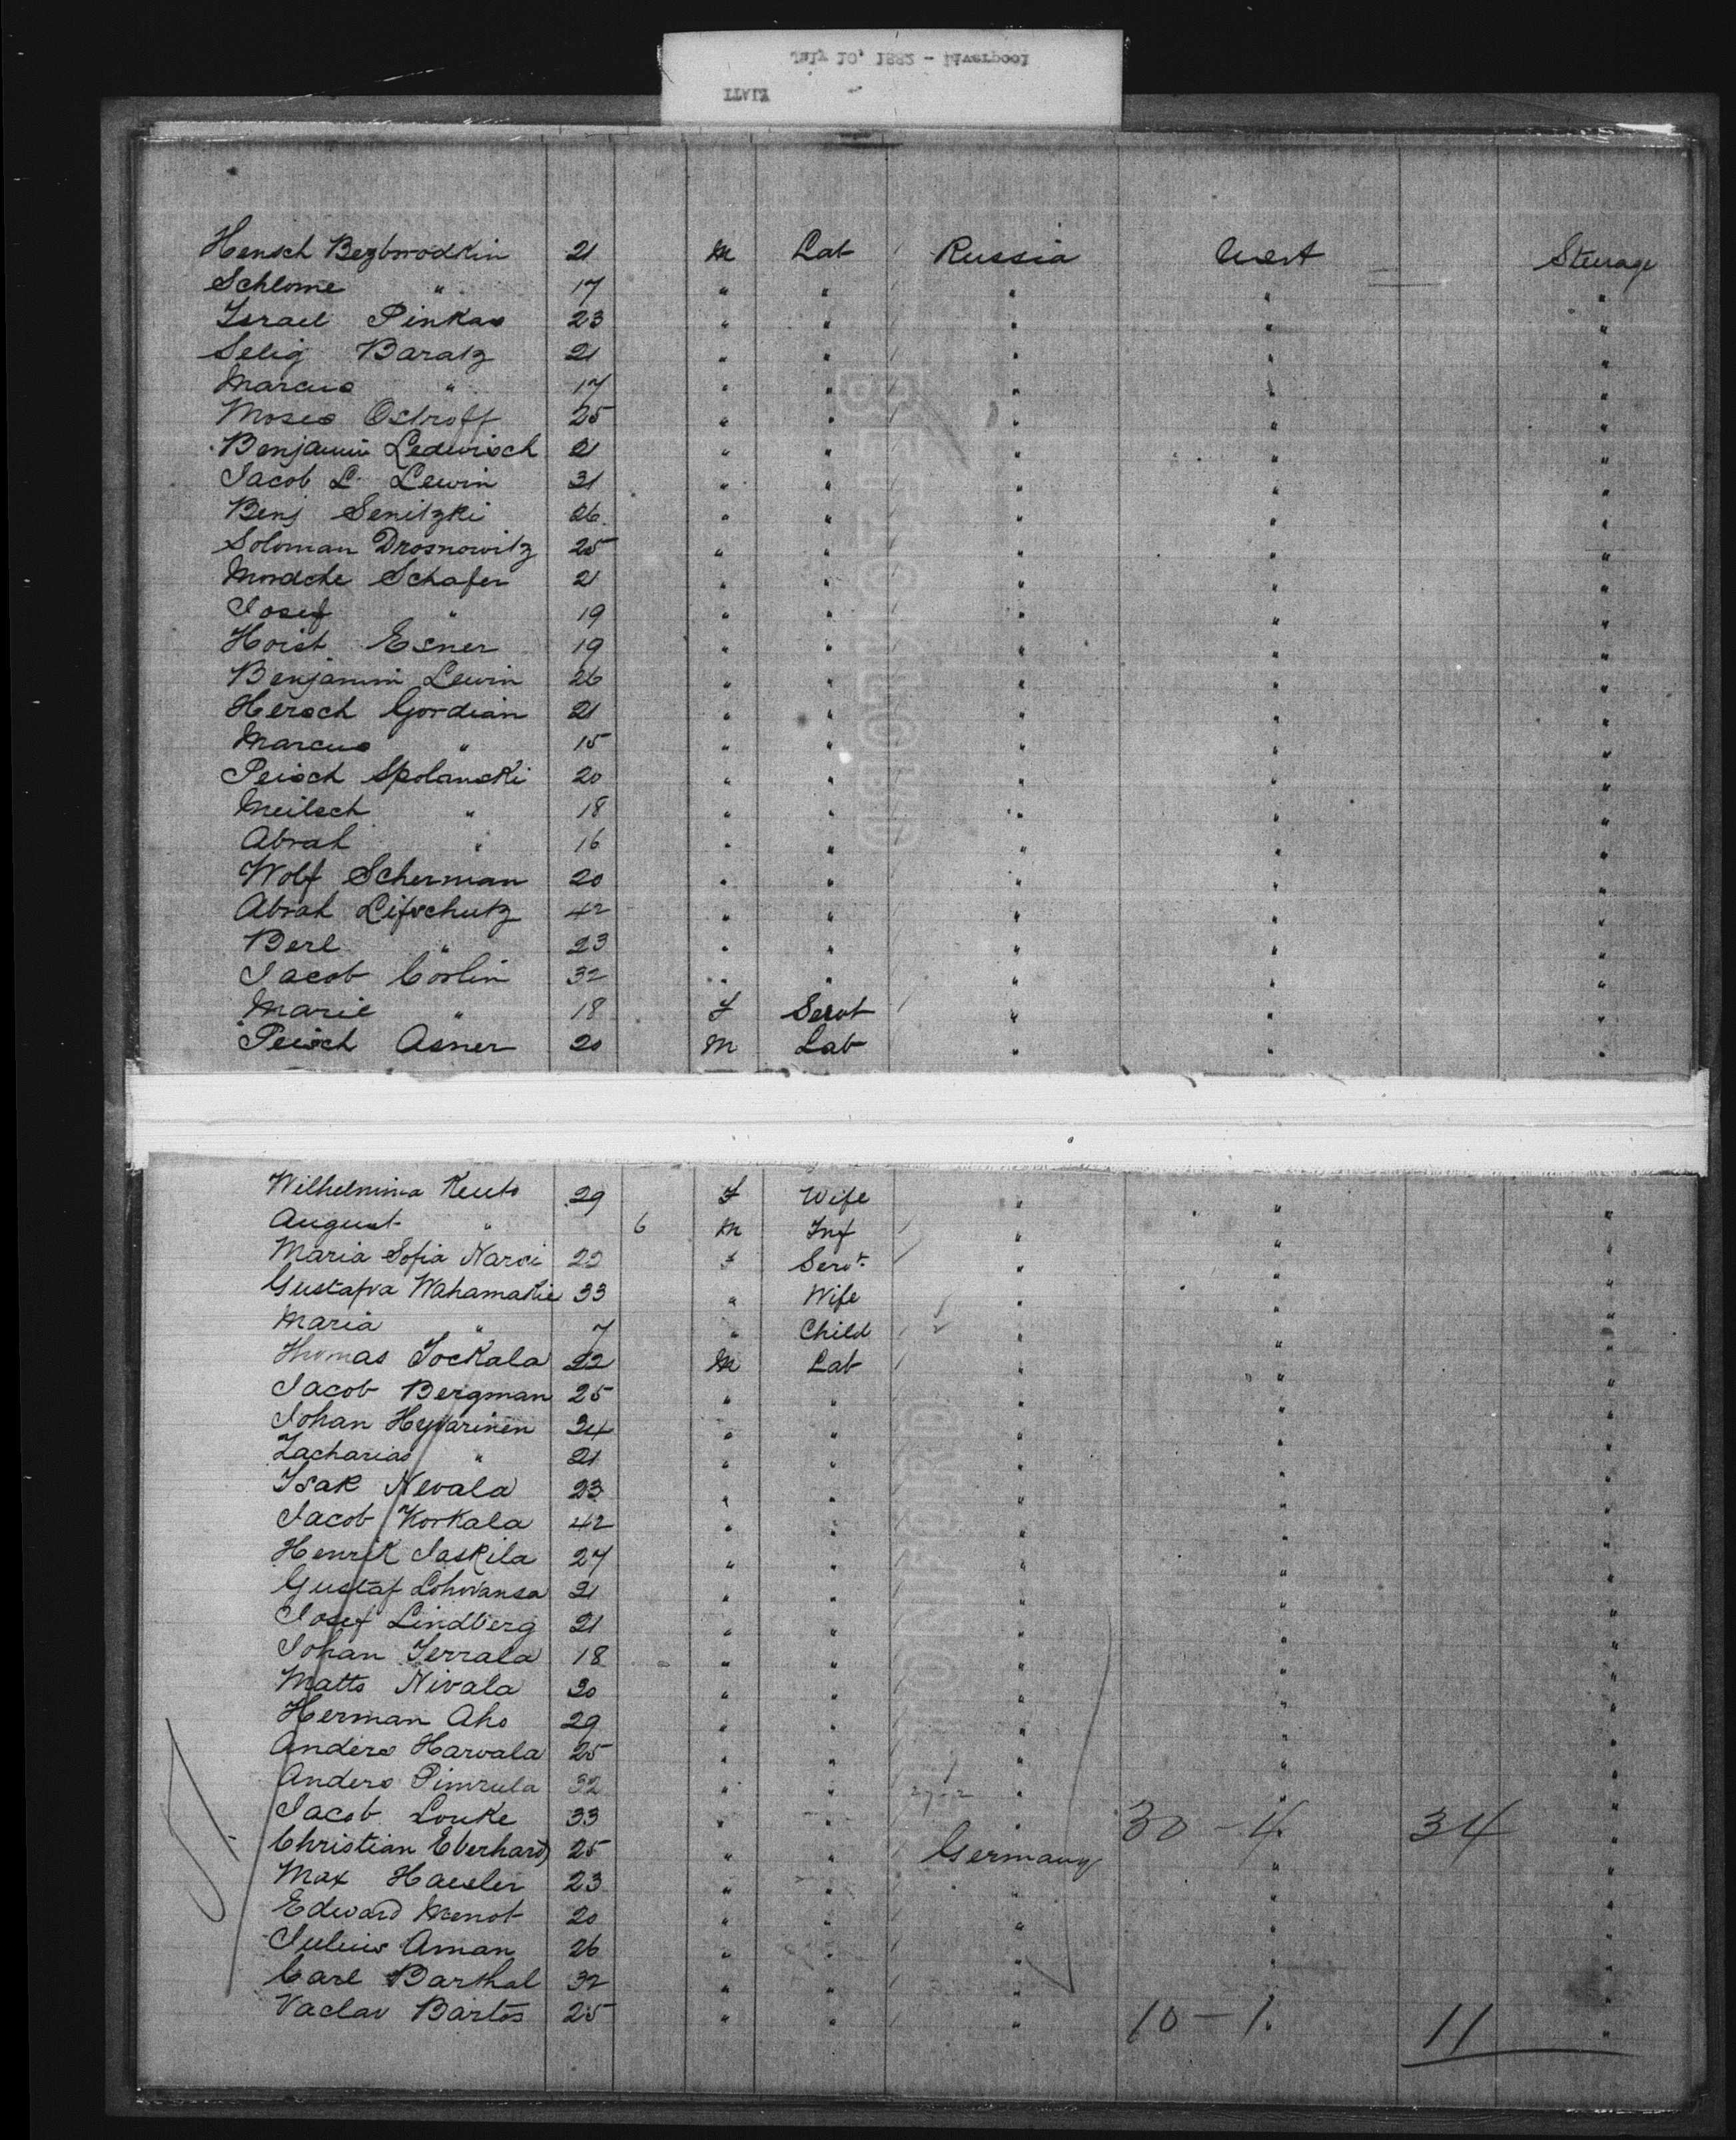 July 10, 1882 - Liverpool
Hensch Bezbrodkin 21 M Lab Russia West Steerage
Schlome " 17 " " " " "
Israel Pinkas 23 " " " " "
Selig Baratz 21 " " " " "
Marcus " 17 " " " " "
Moses Ostroff 25 " " " " "
Benjamin Ledwisch 21 " " " " "
Jacob L. Lewin 31 " " " " "
Benj Senitzki 26 " " " " "
Soloman Drosnowitz 25 " " " " "
Mordche Schafer 21 " " " " "
Josef " 19 " " " " "
Hoist Esner 19 " " " " "
Benjamin Lewin 26 " " " " "
Hersch Gordian 21 " " " " "
Marcus " 15 " " " " "
Peisch Spolanski 20 " " " " "
Meilsch " 18 " " " " "
Abrah " 16 " " " " "
Wolf Scherman 20 " " " " "
Abrah Lifschutz 42 " " " " "
Berl " 23 " " " " "
Jacob Corlin 32 " " " " "
Marie " 18 F Servt " " "
Peisch Asner 20 M Lab " " "
Wilhelmina Keuto 29 F Wife " " "
August " 6 M Inf " " "
Maria Sofia Narvi 22 F Servt " " "
Gustafva Wahamakie 33 " Wife " " "
Maria " 7 " Child " " "
Thomas Jockala 22 M Lab " " "
Jacob Bergman 25 " " " " "
Johan Hyvarinen 24 " " " " "
Zacharias " 21 " " " " "
Isak Nevala 23 " " " " "
Jacob Korkala 42 " " " " "
Henrik Jaskila 27 " " " " "
Gustaf Lohvansa 21 " " " " "
Josef Lindberg 21 " " " " "
Johan Jerrala 18 " " " " "
Matts Nivala 20 " " " " "
Herman Aho 29 " " " " "
Anders Harvala 25 " " " " "
Anders Pimrula 32 " " " " "
Jacob Louke 33 " " " 30 - 4 34 "
Christian Eberhard 25 " " Germany " "
Max Haesler 23 " " " " "
Edward Menot 20 " " " " "
Julius Aman 26 " " " " "
Carl Barthal 32 " " " " "
Vaclav Bartos 25 " " " 10 - 1 11 "